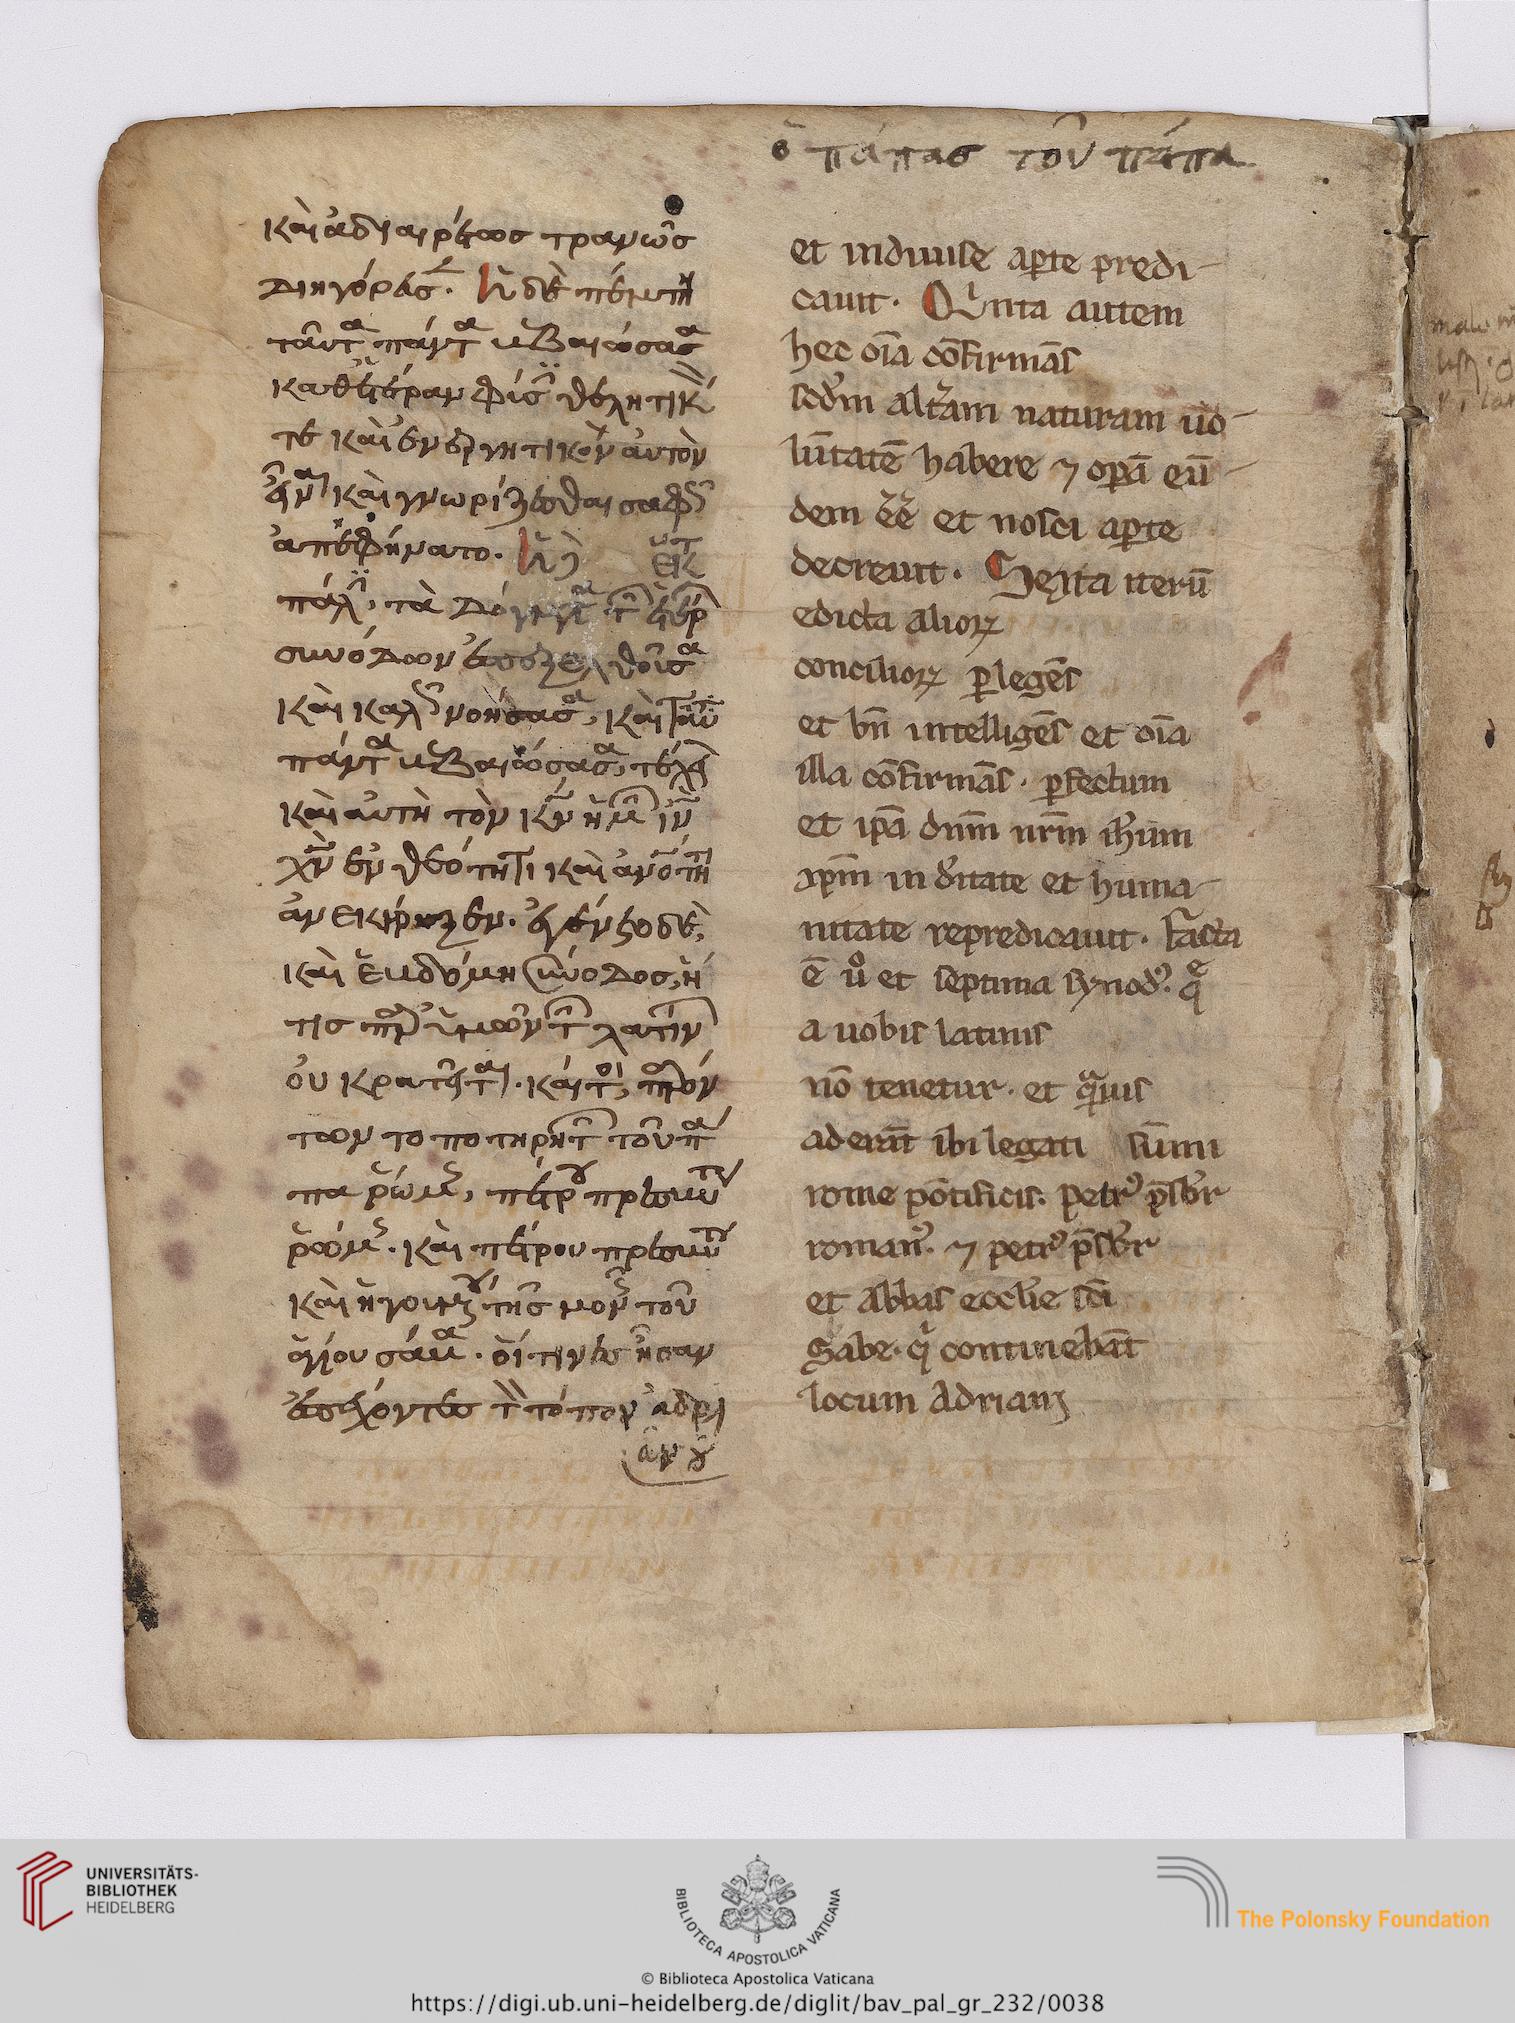 ὁ πάπας τοῦ πάπα
καὶ ἀδιαιρέτως τρανῶς
διηγόρευσ. Ἡ δὲ πέμπτη
ταῦτα πάντα βεβαιώσασα
καθ' ἑτέραν φύσιν θελητικόν
τε καὶ ἐνεργητικὸν αὐτὸν
εἶναι καὶ γνωρίζεσθαι σαφῶς
ἀπεφήνατο. Ἡ
πάλιν, τὰ δόγματα τῶν ἑτέρων
συνόδων
καὶ καλῶς νοήσασα, καὶ ταῦτα
πάντα βεβαιώσασα, τέλειον
καὶ αὐτὴ τὸν κν ἡμῶν ιν
χν ἐν θεότητι καὶ ἀνότητι
ἀνεκήρυξεν. ἐγένετο δὲ,
καὶ ἑβδόμη σύνοδος, ἥ
τις παρ' ὑμῶν τῶν λατίνων
οὐ κρατεῖται. καίτοι, παρόν
των τοποτηρητῶν τοῦ πά
πα ῥώμης, πέτρου πρεσβυτέρου
ῥώμης. καὶ πέτρου πρεσβυτέρου
καὶ ἡγουμένου τῆς μονῆς τοῦ
ἁγίου σάβα. οἵτινες ἦσαν
ἐπέχοντες τὸν τόπον ἀδρι
ανοῦ
et indiuise apte predi-
cauit. Quinta autem
hec oīa cōfirmās
scdm altam naturam uo-
lūtatē habere ⁊ opā eū-
dem eē et nosci apte
decreuit. Sexta iterū
edicta alioꝝ
concilioꝝ ꝑlegēs
et bn̄ intelligēs et oīa
illa cōfirmās. ꝑfectum
et ip̄a dnm̄ nrm̄ ihūm
xpm̄ in dītate et huma-
nitate repredicauit. facta
ē uͦ et septima synodꝰ. q̄
a uobis latinis
nō tenetur. et q̄uis
aderāt ibi legati sūmi
rome pōtificis. petrꝰ p̄sbr
romanꝰ. ⁊ petrꝰ p̄sbr
et abbas ecclie sci
Sabe. q continebāt
locum Adriani
UNIVERSITÄTS-
BIBLIOTHEK
HEIDELBERG
BIBLIOTECA APOSTOLICA VATICANA
The Polonsky Foundation
© Biblioteca Apostolica Vaticana
https://digi.ub.uni-heidelberg.de/diglit/bav_pal_gr_232/0038